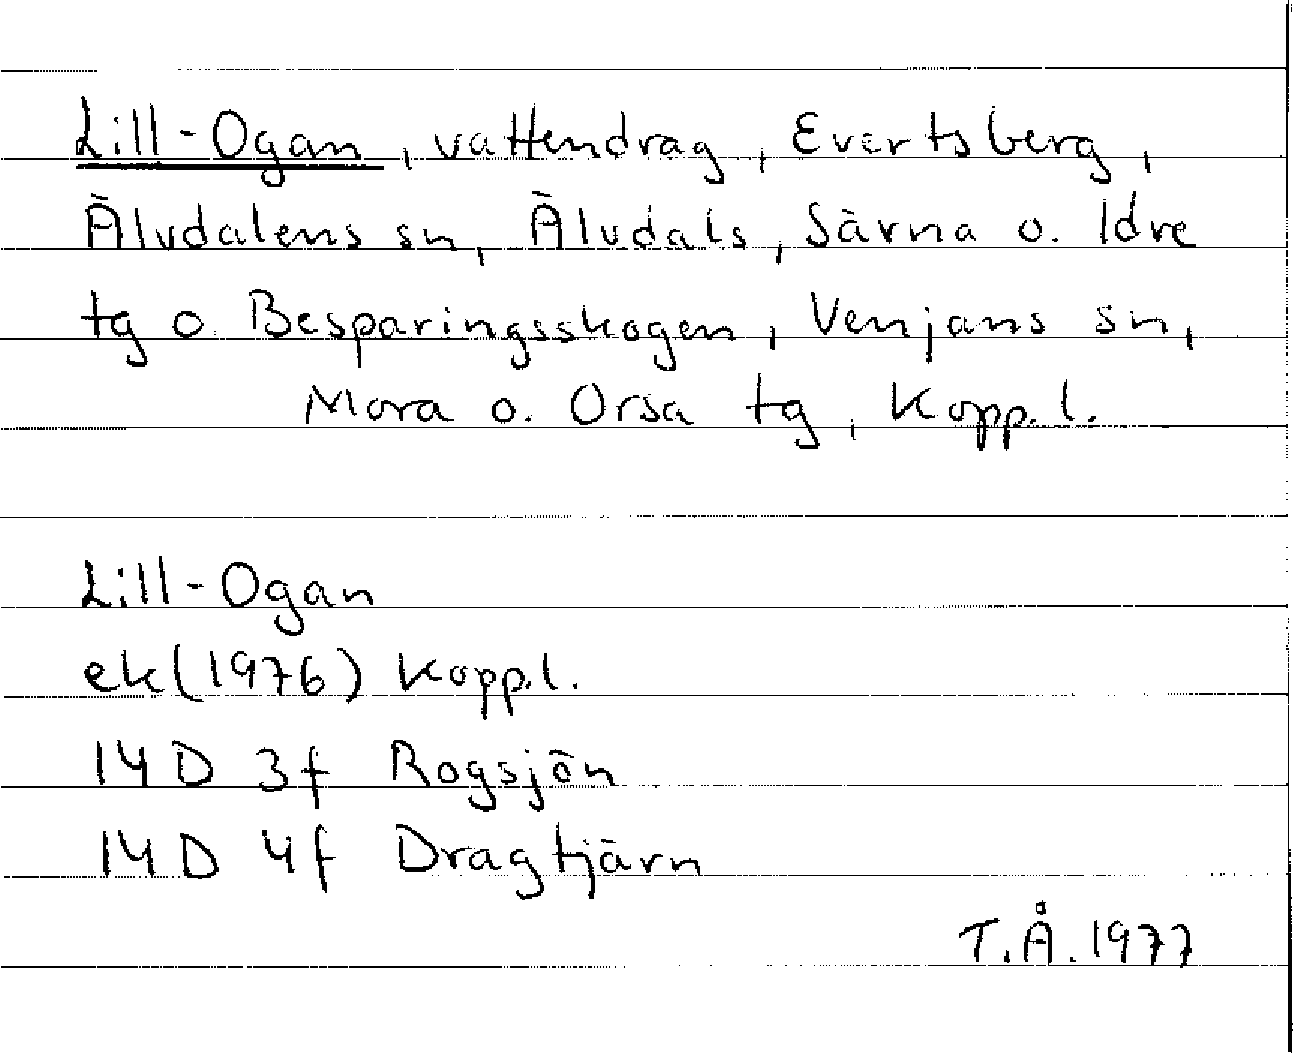 Lill-Ogan, vattendrag, Evertsberg,
Älvdalens sn, Älvdals, Särna o. Idre
tg o. Besparingsskogen, Venjans sn,
Mora o. Orsa tg, Kopp. l.
Lill-Ogan
ek(1976) Kopp.l.
14 D 3f Rogsjön
14 D 4f Dragtjärn
T.Å. 1977